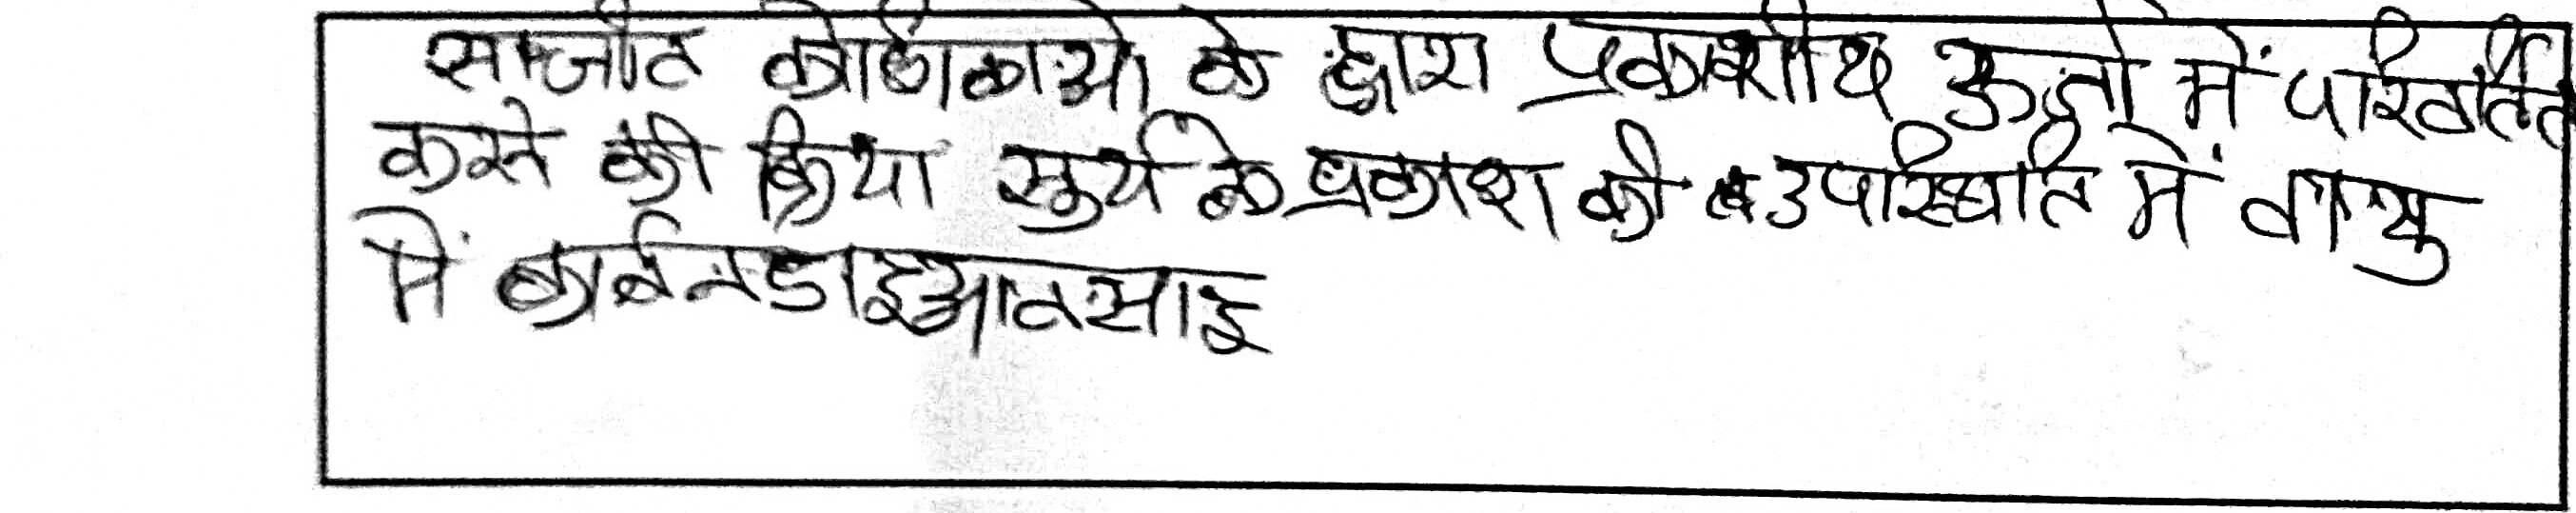 सजीव कोशिकाओ के द्वारा प्रकाशीय ऊर्जा में परिवर्तित
करने की क्रिया सुर्य के प्रकाश की उपस्थिति में वायु
में कार्बनडाइआक्साइ